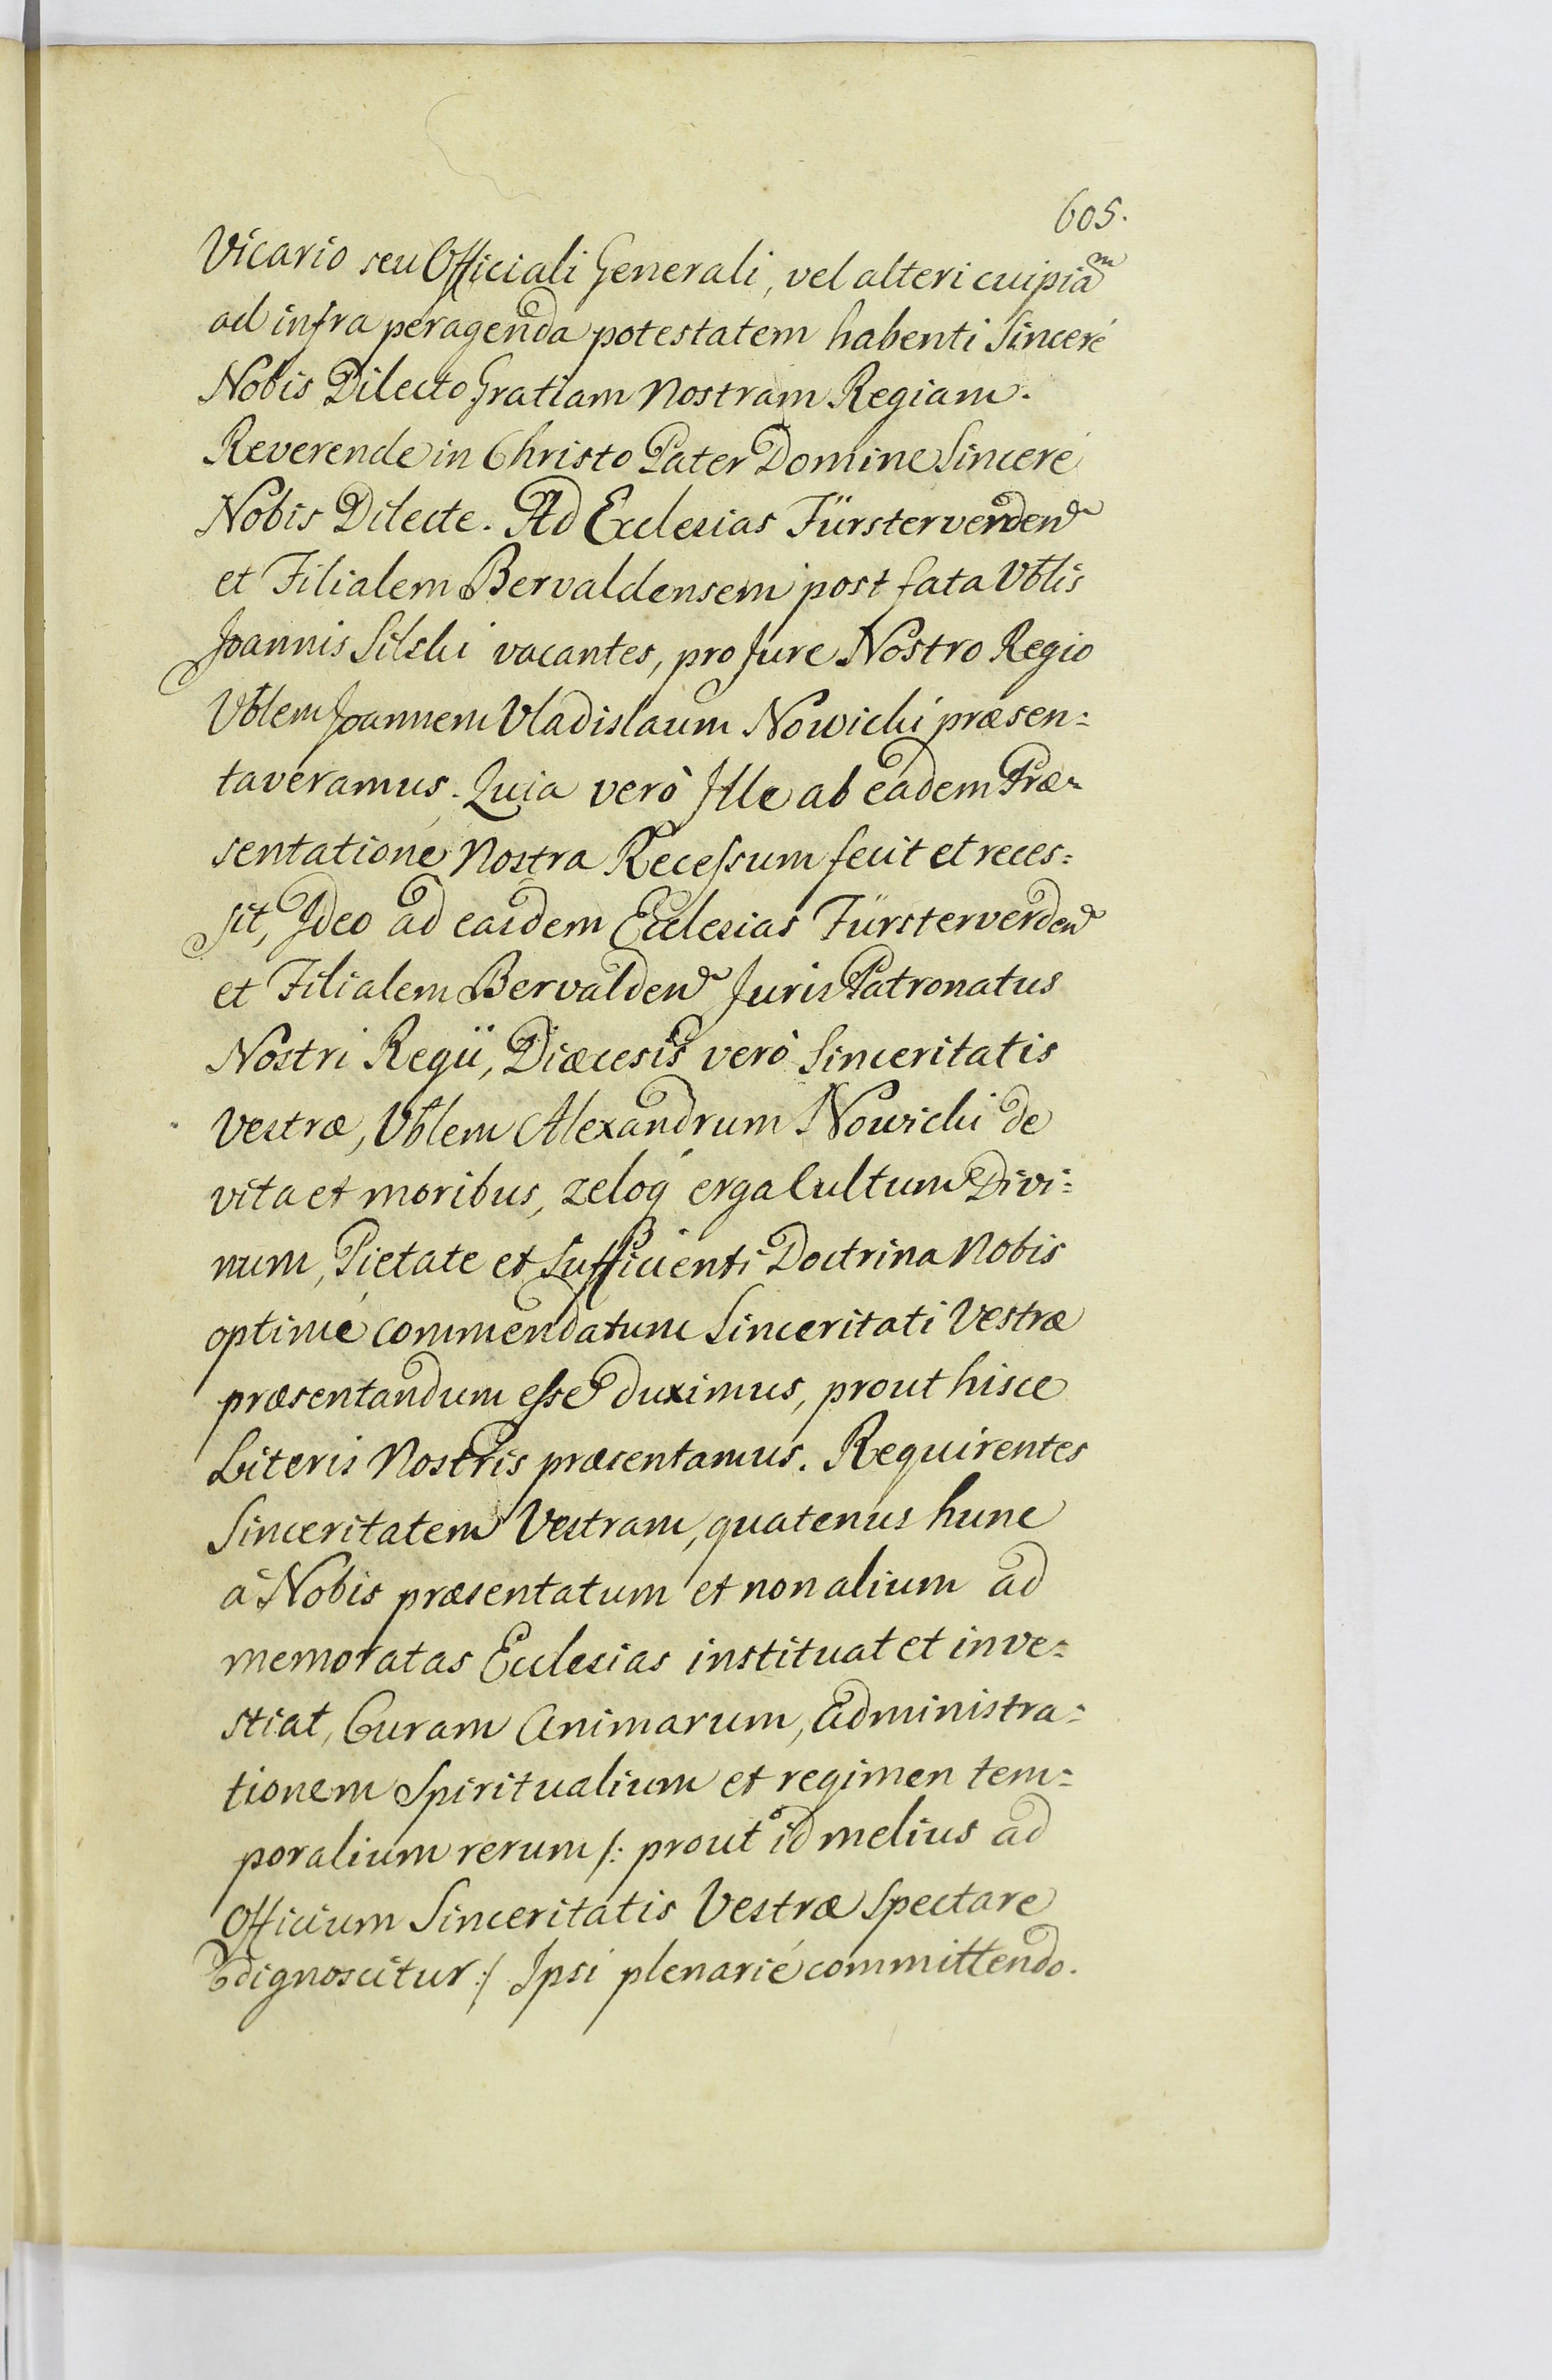 605.
Vicario seu Officiali Generali, vel alteri cuipiam
ad infra peragenda potestatem habenti Sincerè
Nobis Dilecto Gratiam Nostram Regiam.
Reverende in Christo Pater Domine Sincerè
Nobis Dilecte. Ad Ecclesias Fürsterverden
et Filialem Bervaldensem post fata Vblis
Joannis Silski vacantes, pro Jure Nostro Regio
Vblem Joannem Vladislaum Nowicki præsen=
taveramus. Quia verò Ille ab eadem Præ=
sentatione Nostra Recessum fecit et reces=
sit, Ideo ad easdem Ecclesias Fürsterverden
et Filialem Bervalden Juris Patronatus
Nostri Regii, Diæcesis verò Sinceritatis
Vestræ, Vblem Alexandrum Nowicki de
vita et moribus, zeloq́ erga Cultum Divi=
num, Pietate et Sufficienti Doctrina Nobis
optimè commendatum Sinceritati Vestræ
præsentandum esse duximus, prout hisce
Literis Nostris præsentamus. Requirentes
Sinceritatem Vestram, quatenus hunc
à Nobis præsentatum et non alium ad
memoratas Ecclesias instituat et inve=
stiat, Curam Animarum, administra=
tionem Spiritualium et regimen tem=
poralium rerum /: prout id melius ad
Officium Sinceritatis Vestræ Spectare
dignoscitur :/ Ipsi plenariè committendo.